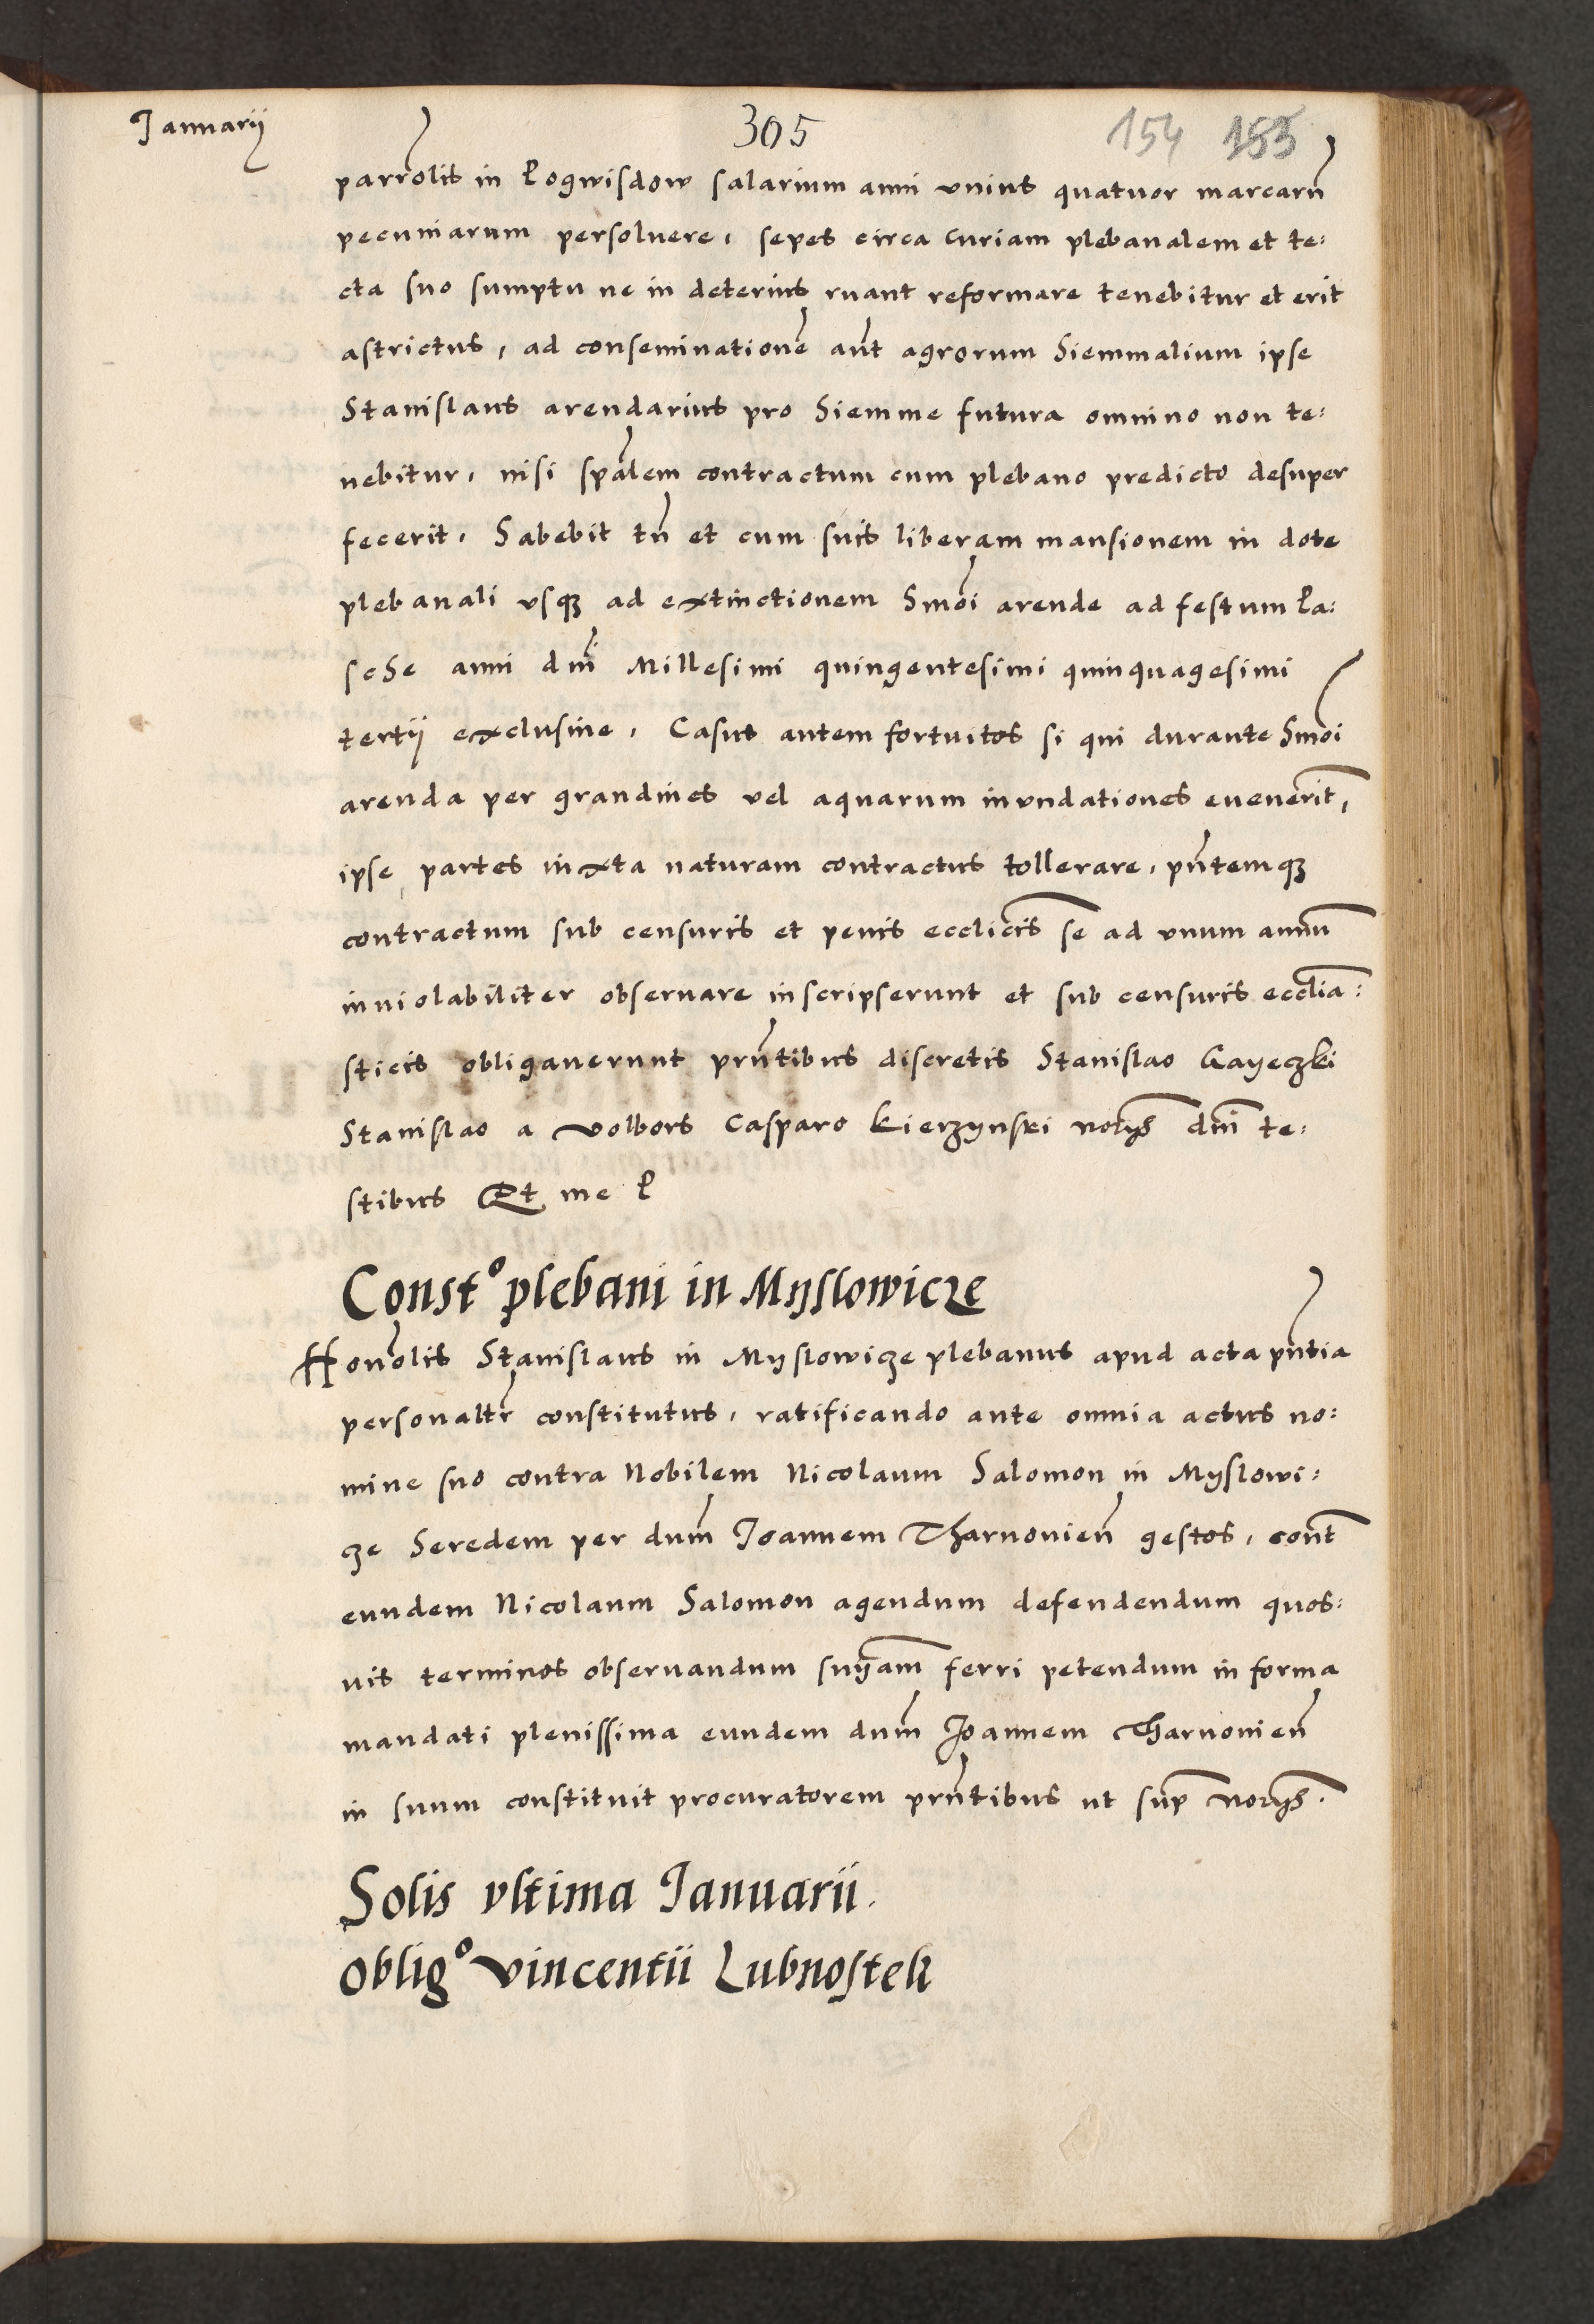 Januarii
305
154 153
parrolis in Pogwisdow salarium anni unius quatuor marcarũ
pecuniarum persoluere, sepes circa curiam plebanalem et te:
cta suo sumptu ne in deterius ruant reformare tenebitur et erit
astrictus, ad conseminationẽ aũt agrorum hiemmalium ipse
Stanislaus arendarius pro hiemme futura omnino non te:
nebitur, nisi spãlem contractum cum plebano predicto desuper
fecerit, habebit tñ et cum suis liberam mansionem in dote
plebanali vsqꝫ ad extinctionem hmõi arende ad festum Pa:
sche anni dñi Millesimi quingentesimi quinquagesimi
tertii exclusiue, Casus autem fortuitos si qui durante hmõi
arenda per grandines vel aquarum inundationes euenerĩt,
ipse partes iuxta naturam contractus tollerare, pñtemqꝫ
contractum sub censuris et penis eccliĉis se ad vnum annũ
inuiolabiliter obseruare inscripserunt et sub censuris ecclia:
sticis obligauerunt prñtibus discretis Stanislao Gayeczki
Stanislao a Volbors Casparo Kierzynski notͫijs dñi te:
stibus Et me P
Const° plebani in Myslowicze
Honolis Stanislaus in Myslowicze plebanus apud acta pñtia
personalr̃ constitutus, ratificando ante omnia actus no:
mine suo contra Nobilem Nicolaum Salomon in Myslowi:
cze heredem per dnm̃ Joannem Tharnouieñ gestos, cont̃
eundem Nicolaum Salomon agendum defendendum quos:
uis terminos obseruandum sniãm ferri petendum in forma
mandati plenissima eundem dnm̃ Joannem Tharnouieñ
in suum constituit procuratorem prñtibus ut sup̃ norijs.
Solis vltima Januarii.
Oblig° Vincentii Lubnostek